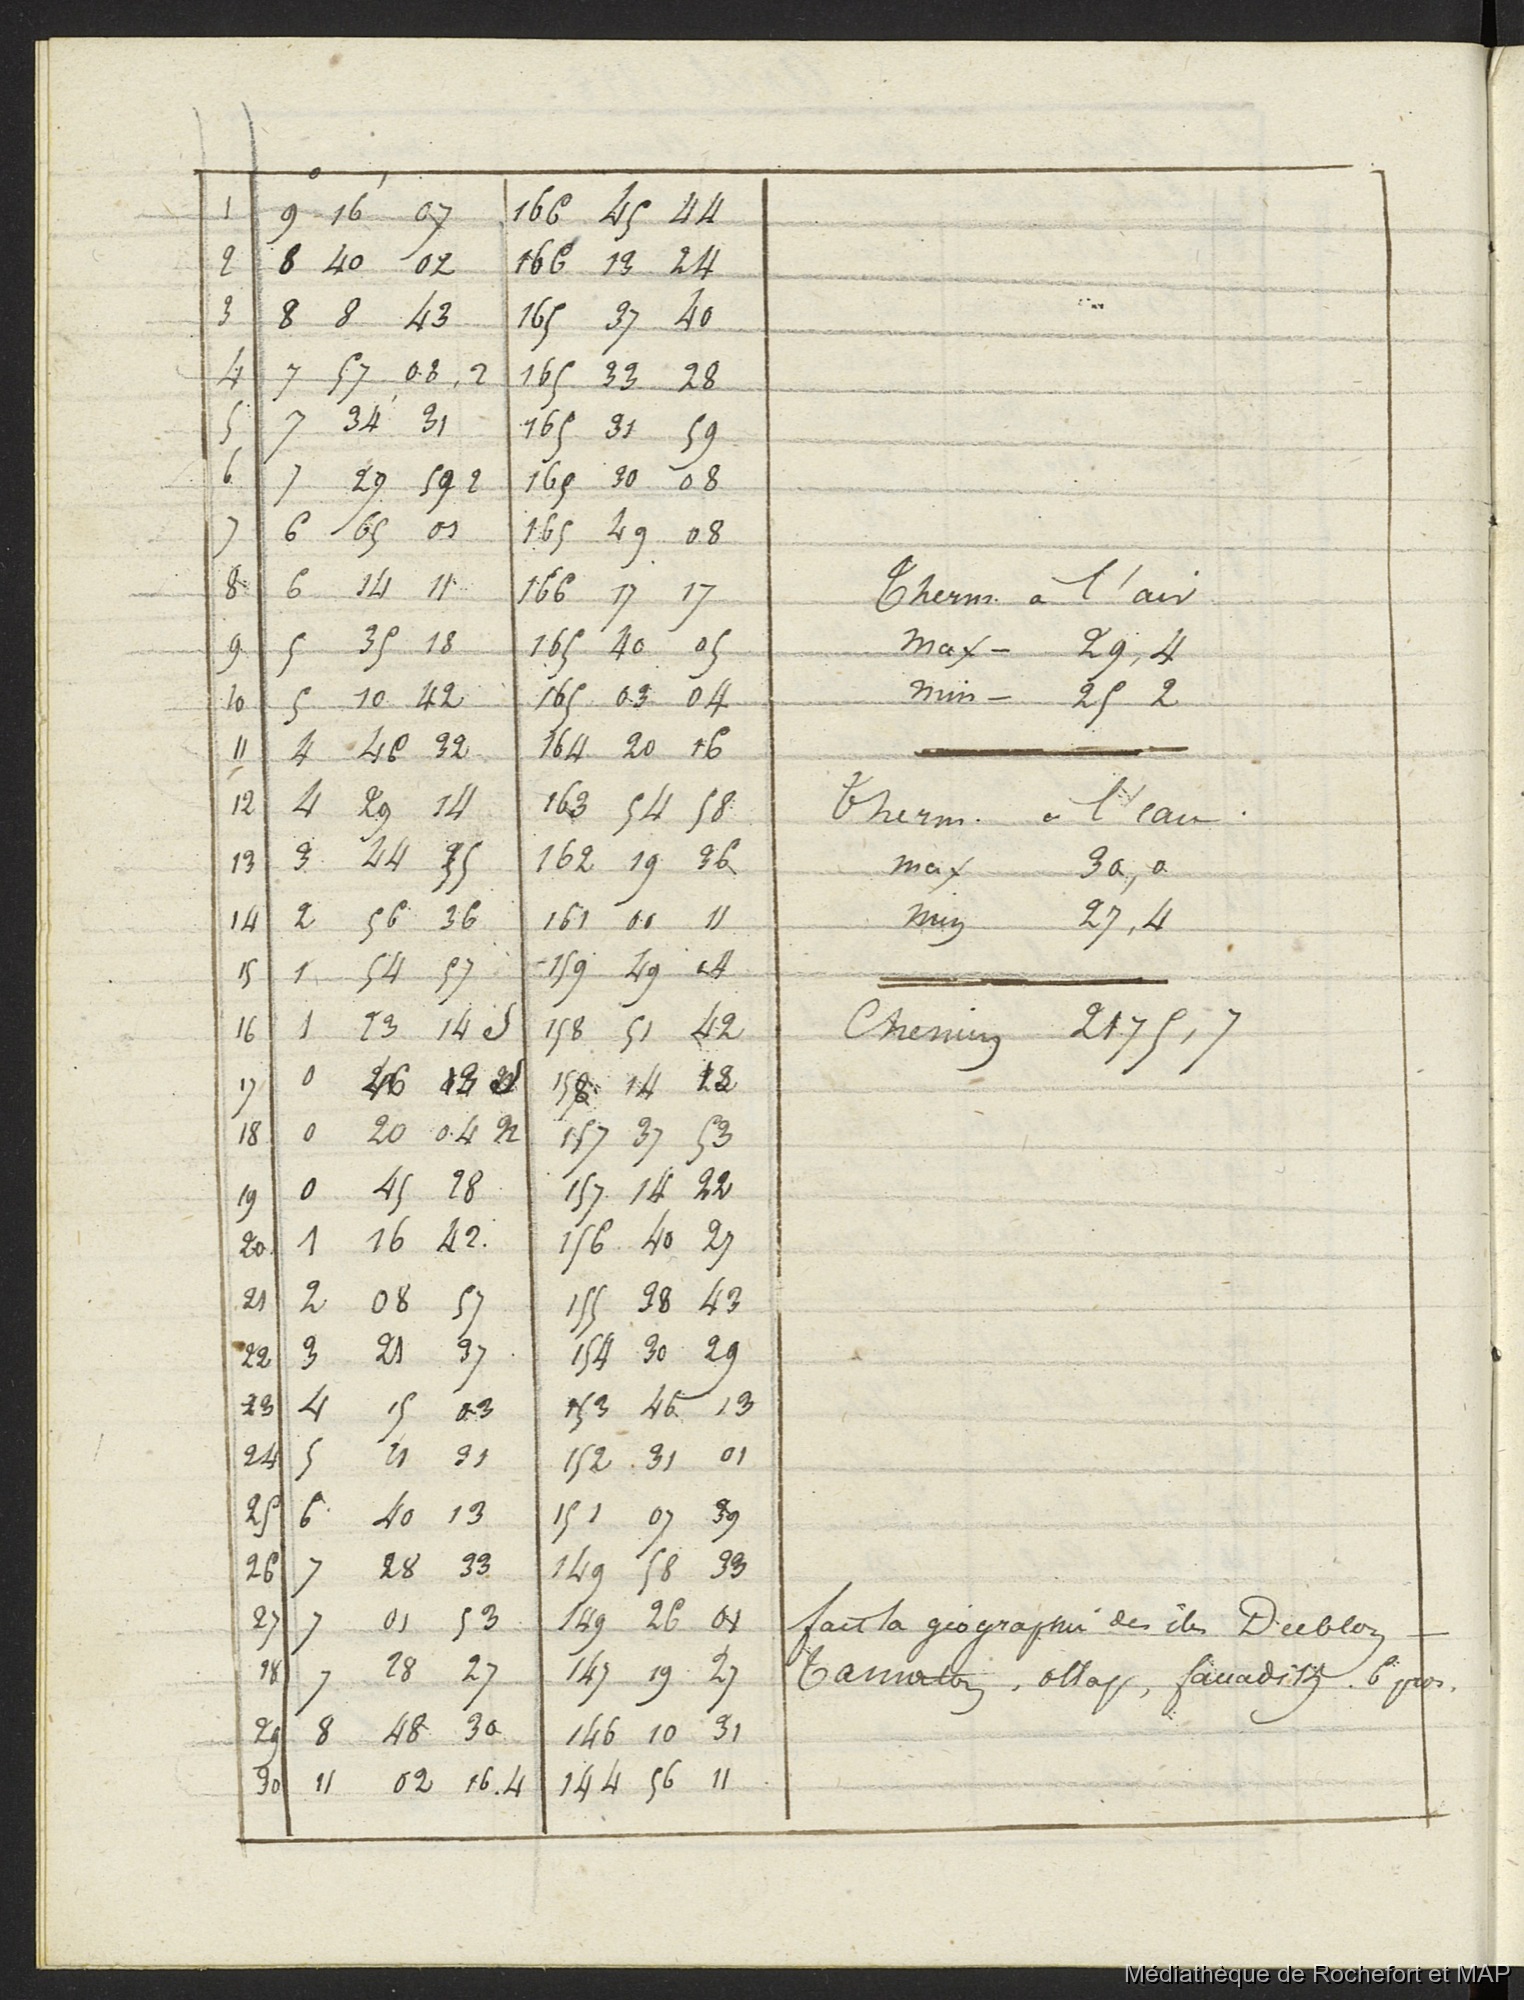 ° '
1 9 16 07 166 45 44
2 8 40 02 166 13 24
3 8 8 43 165 37 40
4 7 57 08,2 165 33 28
5 7 34 31 165 31 59
6 7 29 59 2 165 30 08
7 6 65 01 165 49 08
8 6 14 11 166 17 17 Therm. a l'air
9 5 35 18 165 40 05 max - 29,4
10 5 10 42 165 03 04 min - 25 2
11 4 46 32 164 20 16
12 4 29 14 163 54 58 Therm. a l'eau.
13 3 44 35 162 19 36 max 30,0
14 2 56 36 161 00 11 min 27,4
15 1 54 57 159 49 14
16 1 23 14 S 158 51 42 Chemin 2175,7
17 0 46 S 158 14
18 0 20 04 N 157 37 53
19 0 45 28 157 14 22
20 1 16 42. 156 40 27
21 2 08 57 155 38 43
22 3 21 37 154 30 29
23 4 15 03 153 46 13
24 5 21 31 152 31 01
25 6 40 13 151 07 39
26 7 28 33 149 58 33
27 7 01 53 149 26 01 fait la géographie des îles Dublon —
28 7 28 27 147 19 27
29 8 48 30 146 10 31
30 11 02 16.4 144 56 11
Médiathèque de Rochefort et MAP